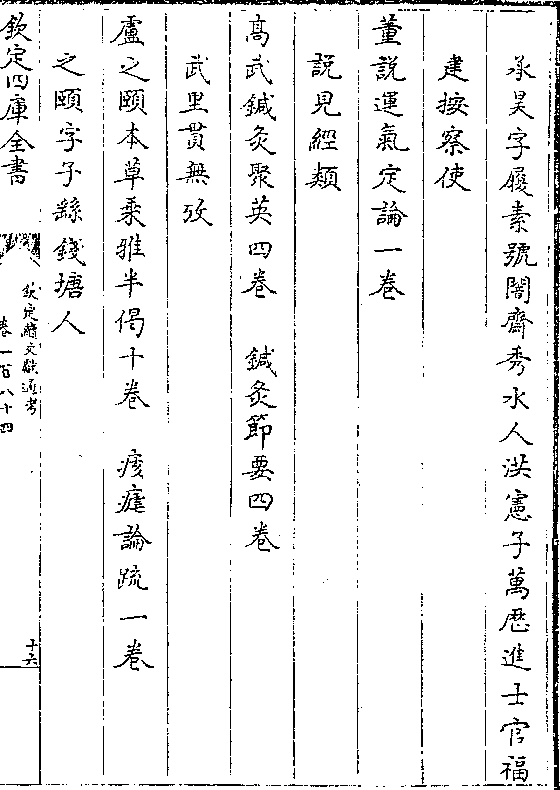 承昊字履素號闇齋秀水人洪憲子萬厯進士官福
建按察使
董說運氣定論一卷
說見經類
髙武鍼灸聚英四卷　鍼灸節要四卷
武里貫無攷
盧之頤本草乗雅半偈十卷　痎瘧論疏一卷
之頤字子繇錢塘人
欽定四庫全書
欽定續文獻通考
卷一百八十四
十六